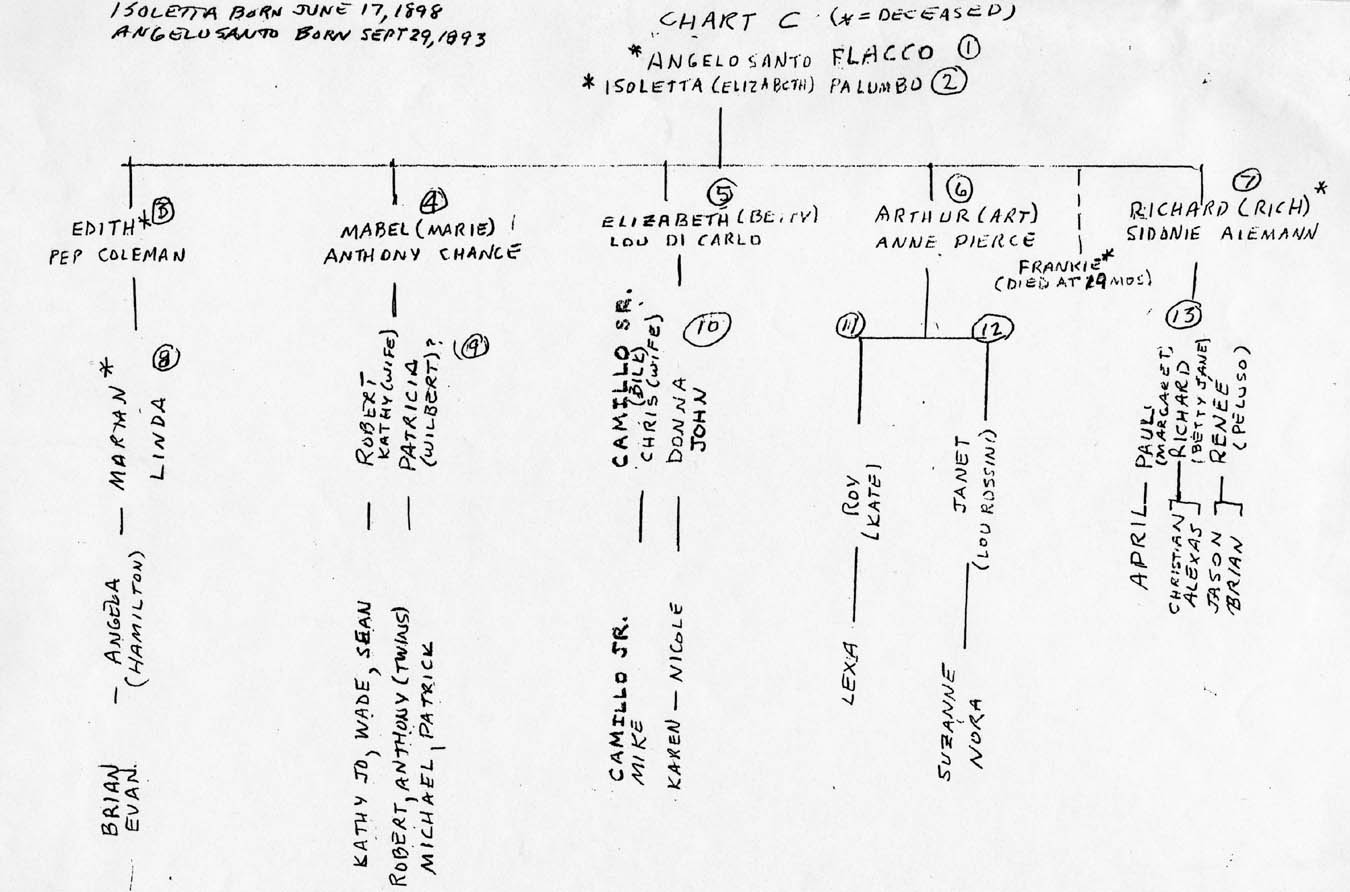 ISOLETTA BORN JUNE 17, 1898
ANGELOSANTO BORN SEPT 29, 1893
CHART C (*=DECEASED)
*ANGELOSANTO FLACCO 1
*ISOLETTA (ELIZABETH) PALUMBO 2
EDITH* 3
PEP COLEMAN
4
MABEL (MARIE)
ANTHONY CHANCE
5
ELIZABETH (BETTY)
LOU DI CARLO
6
ARTHUR (ART)
ANNE PIERCE
FRANKIE*
(DIED AT 29 MOS)
7
RICHARD (RICH)*
SIDONIE ALEMANN
8
MARIAN*
LINDA
ANGELA
(HAMILTON)
BRIAN
EVAN
9
ROBERT
KATHY (WIFE)
PATRICIA
(WILBERT)?
KATHY JO, WADE, SEAN
ROBERT, ANTHONY (TWINS)
MICHAEL, PATRICK
10
CAMILLO SR.
(BILL)
CHRIS (WIFE)
DONNA
JOHN
CAMILLO JR.
MIKE
KAREN — NICOLE
11
ROY
(KATE)
LEXA
12
JANET
(LOU ROSSINI)
SUZANNE
NORA
13
PAUL
(MARGARET)
RICHARD
(BETTY JANE)
RENEE
(PELUSO)
APRIL
CHRISTIAN
ALEXAS
JASON
BRIAN